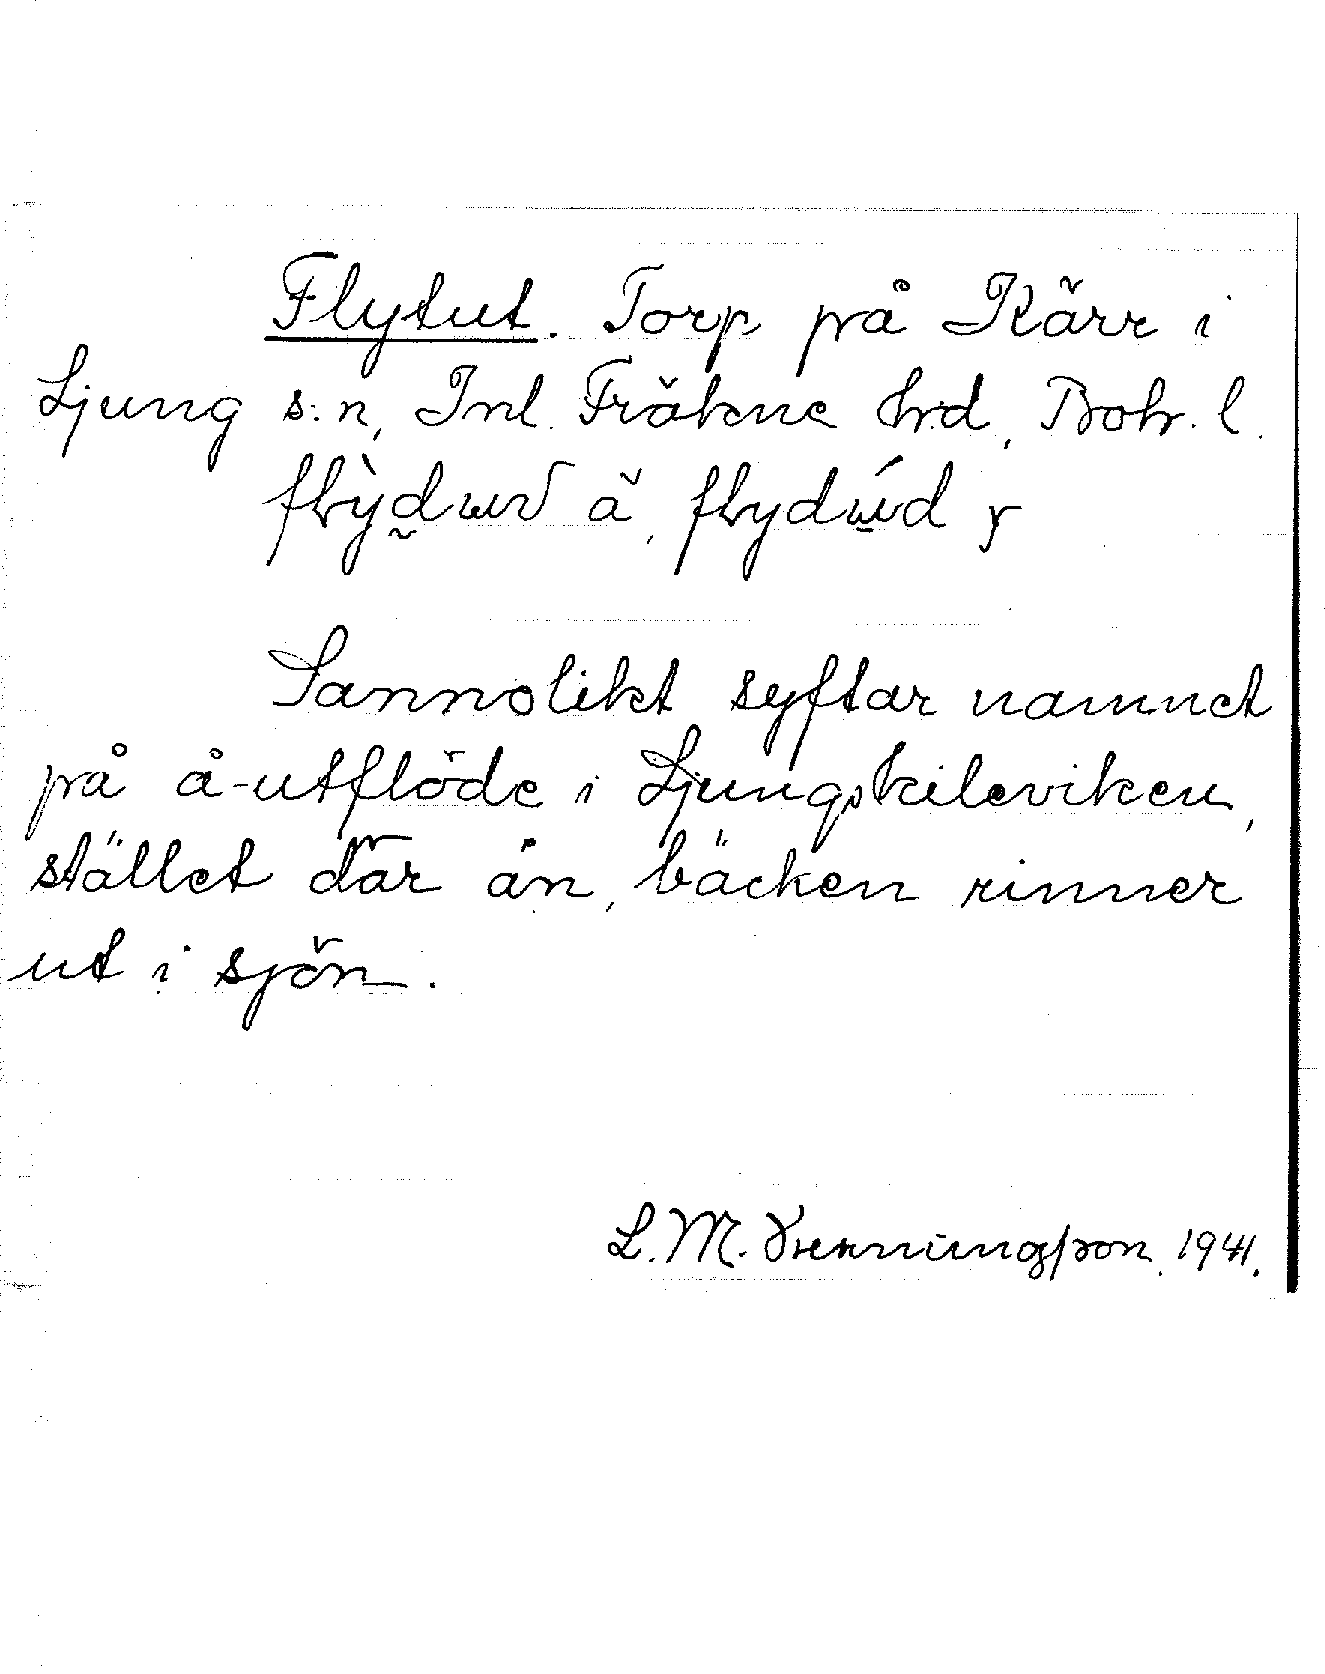 Flytut. Torp på Kärr i
Ljung s:n, Inl. Fräkne hrd, Boh. l.
ä, y
Sannolikt syftar namnet
på å-utflöde i Ljungskileviken,
stället där ån, bäcken rinner
ut i sjön.
L. M. 1941.